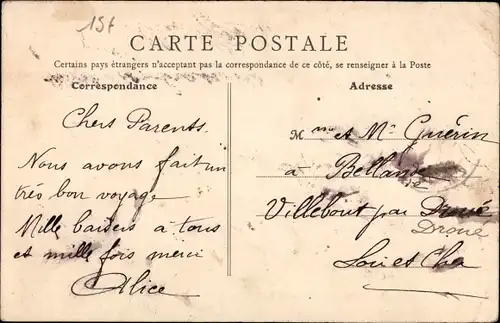 15f
CARTE POSTALE
Certains pays étrangers n'acceptant pas la correspondance de ce côté, se renseigner à la Poste
Correspondance
Chers Parents.
Nous avons fait un
très bon voyage
Mille baisers à tous
et mille fois merci
Alice
Adresse
Mme et Mr Guérin
à Bellande
Villebout par Droué
Droué
Loir et Cher